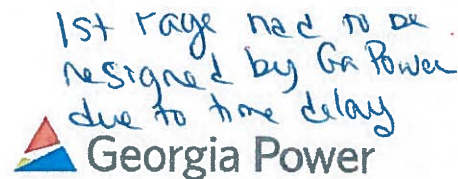 1st Page had to be
resigned by Ga Power
due to time delay
Georgia Power